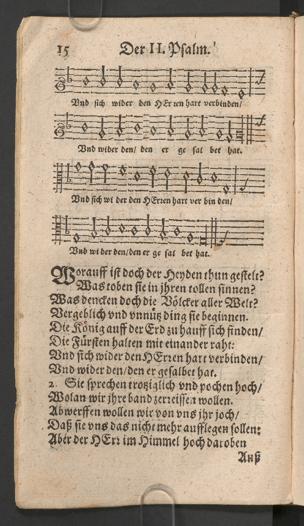 15 Der II. Psalm.
Vnd sich wider den HErren hart verbinden/
Vnd wider den/ den er ge sal bet hat.
Vnd sich wi der den HErren hart ver bin den/
Vnd wi der den/ den er ge sal bet hat.
Worauff ist doch der Heyden thun gestelt?
Was toben sie in jhren tollen sinnen?
Was dencken doch die Völcker aller Welt?
Vergeblich vnd vnnütz ding sie beginnen.
Die König auff der Erd zu hauff sich finden/
Die Fürsten halten mit einander raht:
Vnd sich wider den HErren hart verbinden/
Vnd wider den/ den er gesalbet hat.
2. Sie sprechen trotziglich vnd pochen hoch/
Wolan wir jhre band zerreissen wollen.
Abwerffen wollen wir von vns jhr joch/
Daß sie vns das nicht mehr aufflegen sollen:
Aber der HErr im Himmel hoch daroben
Auß